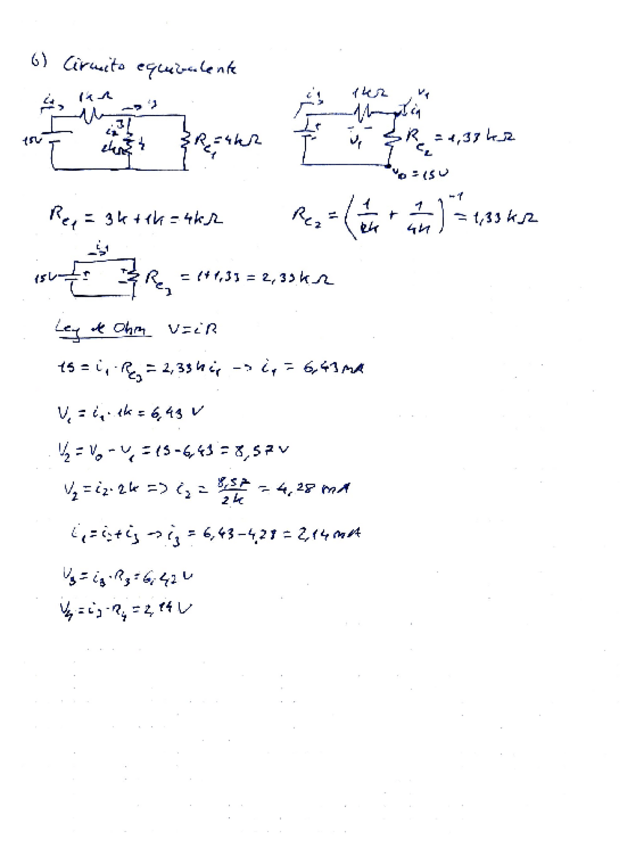 6) Circuito equivalente
i1 1kΩ i3
15V i2 2kΩ Re1 = 4kΩ
i1 1kΩ V1
i1 V1 Re2 = 1,33 kΩ
V0 = 15V
Re1 = 3k + 1k = 4kΩ
Re2 = (1/2k + 1/4k)^-1 = 1,33 kΩ
i1
15V Re3 = 1+1,33 = 2,33 kΩ
Ley de Ohm V = iR
15 = i1 · Re3 = 2,33k i1 -> i1 = 6,43 mA
V1 = i1 · 1k = 6,43 V
V2 = V0 - V1 = 15 - 6,43 = 8,57 V
V2 = i2 · 2k => i2 = 8,57/2k = 4,28 mA
i1 = i2 + i3 -> i3 = 6,43 - 4,28 = 2,14 mA
V3 = i3 · R3 = 6,42 V
V4 = i3 · R4 = 2,14 V